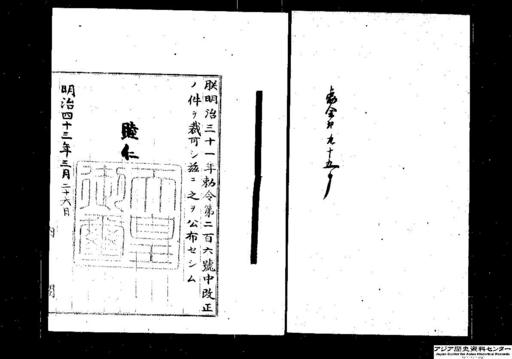 勅令第九十五号
朕明治三十一年勅令第二百六號中改正
ノ件ヲ裁可シ茲ニ之ヲ公布セシム
睦仁
天皇御璽
明治四十三年三月二十六日
内閣
アジア歴史資料センター
Japan Center for Asian Historical Records